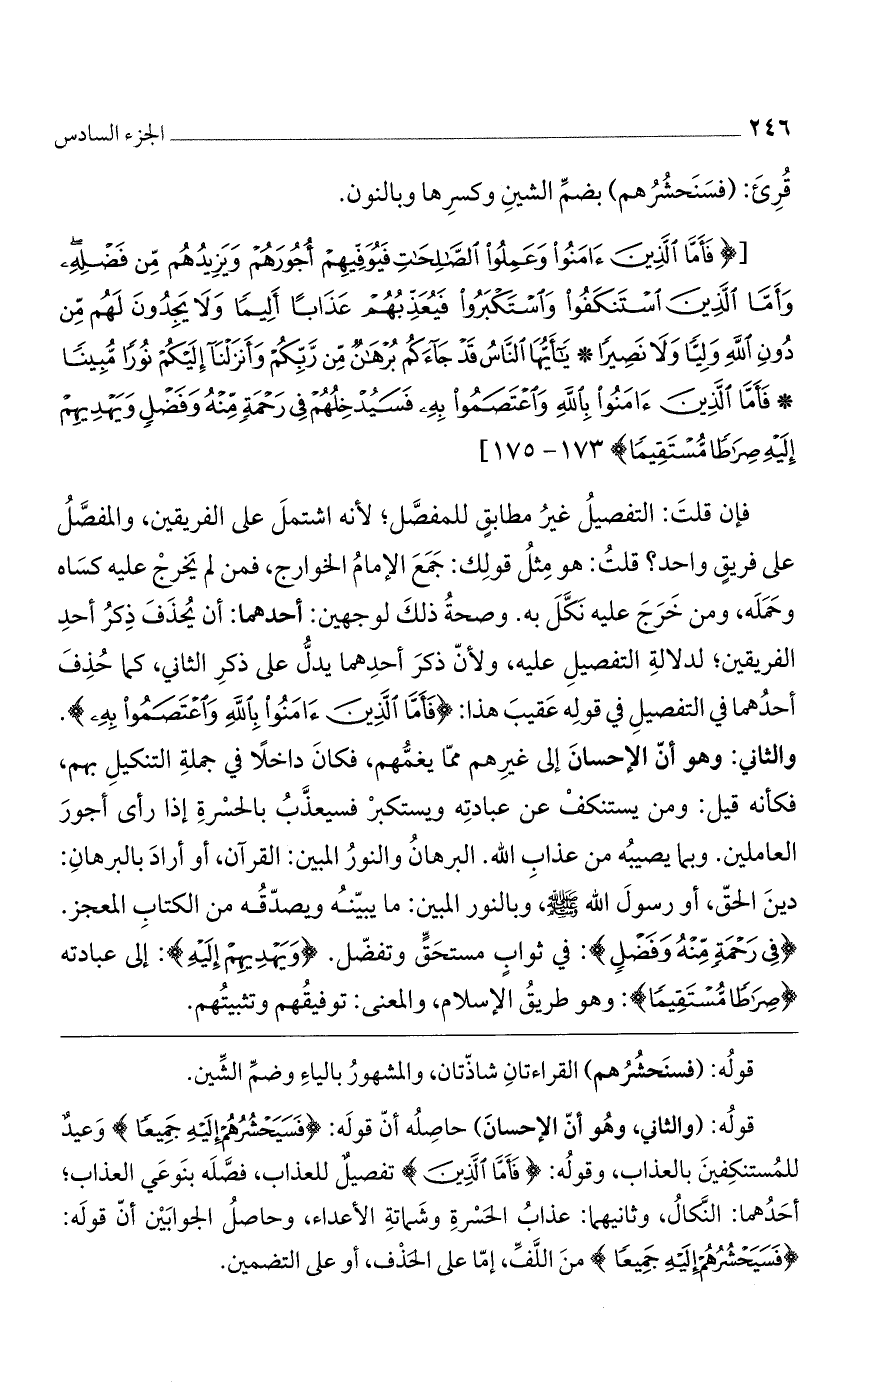 ٢٤٦ ـــــــــــــــــــــــــــــــــــــــ الجزء السادس
قُرِئَ: (فسَنَحشُرُهم) بضمِّ الشينِ وكسرِها وبالنون.
[﴿ فَأَمَّا ٱلَّذِينَ ءَامَنُوا۟ وَعَمِلُوا۟ ٱلصَّـٰلِحَـٰتِ فَيُوَفِّيهِمْ أُجُورَهُمْ وَيَزِيدُهُم مِّن فَضْلِهِۦ
وَأَمَّا ٱلَّذِينَ ٱسْتَنكَفُوا۟ وَٱسْتَكْبَرُوا۟ فَيُعَذِّبُهُمْ عَذَابًا أَلِيمًا وَلَا يَجِدُونَ لَهُم مِّن
دُونِ ٱللَّهِ وَلِيًّا وَلَا نَصِيرًا * يَـٰٓأَيُّهَا ٱلنَّاسُ قَدْ جَآءَكُم بُرْهَـٰنٌ مِّن رَّبِّكُمْ وَأَنزَلْنَآ إِلَيْكُمْ نُورًا مُّبِينًا
* فَأَمَّا ٱلَّذِينَ ءَامَنُوا۟ بِٱللَّهِ وَٱعْتَصَمُوا۟ بِهِۦ فَسَيُدْخِلُهُمْ فِى رَحْمَةٍ مِّنْهُ وَفَضْلٍ وَيَهْدِيهِمْ
إِلَيْهِ صِرَٰطًا مُّسْتَقِيمًا﴾ ١٧٣ - ١٧٥]
فإن قلتَ: التفصيلُ غيرُ مطابقٍ للمفصَّل؛ لأنه اشتملَ على الفريقين، والمفصَّلُ
على فريقٍ واحد؟ قلتُ: هو مِثلُ قولِك: جَمَعَ الإمامُ الخوارج، فمن لم يَخرجْ عليه كسَاه
وحَمَلَه، ومن خَرَجَ عليه نَكَّلَ به. وصحةُ ذلكَ لوجهين: أحدهما: أن يُحذَفَ ذِكرُ أحدِ
الفريقين؛ لدلالةِ التفصيلِ عليه، ولأنّ ذكرَ أحدِهما يدلُّ على ذكرِ الثاني، كما حُذِفَ
أحدُهما في التفصيلِ في قولِه عَقيبَ هذا: ﴿فَأَمَّا ٱلَّذِينَ ءَامَنُوا۟ بِٱللَّهِ وَٱعْتَصَمُوا۟ بِهِۦ﴾.
والثاني: وهو أنّ الإحسانَ إلى غيرِهم ممّا يغمُّهم، فكانَ داخلًا في جملةِ التنكيلِ بهم،
فكأنه قيل: ومن يستنكفْ عن عبادتِه ويستكبرْ فسيعذَّبُ بالحسْرةِ إذا رأى أجورَ
العاملين. وبما يصيبُه من عذابِ الله. البرهانُ والنورُ المبين: القرآن، أو أرادَ بالبرهانِ:
دينَ الحقّ، أو رسولَ الله ﷺ، وبالنور المبين: ما يبيّنُه ويصدّقُه من الكتابِ المعجز.
﴿فِى رَحْمَةٍ مِّنْهُ وَفَضْلٍ﴾: في ثوابٍ مستحَقٍّ وتفضّل. ﴿وَيَهْدِيهِمْ إِلَيْهِ﴾: إلى عبادته
﴿صِرَٰطًا مُّسْتَقِيمًا﴾: وهو طريقُ الإسلام، والمعنى: توفيقُهم وتثبيتُهم.
قولُه: (فسنَحشُرُهم) القراءتانِ شاذّتان، والمشهورُ بالياءِ وضمِّ الشِّين.
قولُه: (والثاني، وهُو أنّ الإحسان) حاصِلُه أنّ قولَه: ﴿فَسَيَحْشُرُهُمْ إِلَيْهِ جَمِيعًا ﴾ وَعيدٌ
للمُستنكِفينَ بالعذاب، وقولُه: ﴿ فَأَمَّا ٱلَّذِينَ ﴾ تفصيلٌ للعذاب، فصَّلَه بنَوعَي العذاب؛
أحَدُهما: النَّكالُ، وثانيهما: عذابُ الحَسْرةِ وشَماتةِ الأعداء، وحاصلُ الجوابَيْن أنّ قولَه:
﴿فَسَيَحْشُرُهُمْ إِلَيْهِ جَمِيعًا ﴾ منَ اللَّفِّ، إمّا على الحَذْف، أو على التضمين.